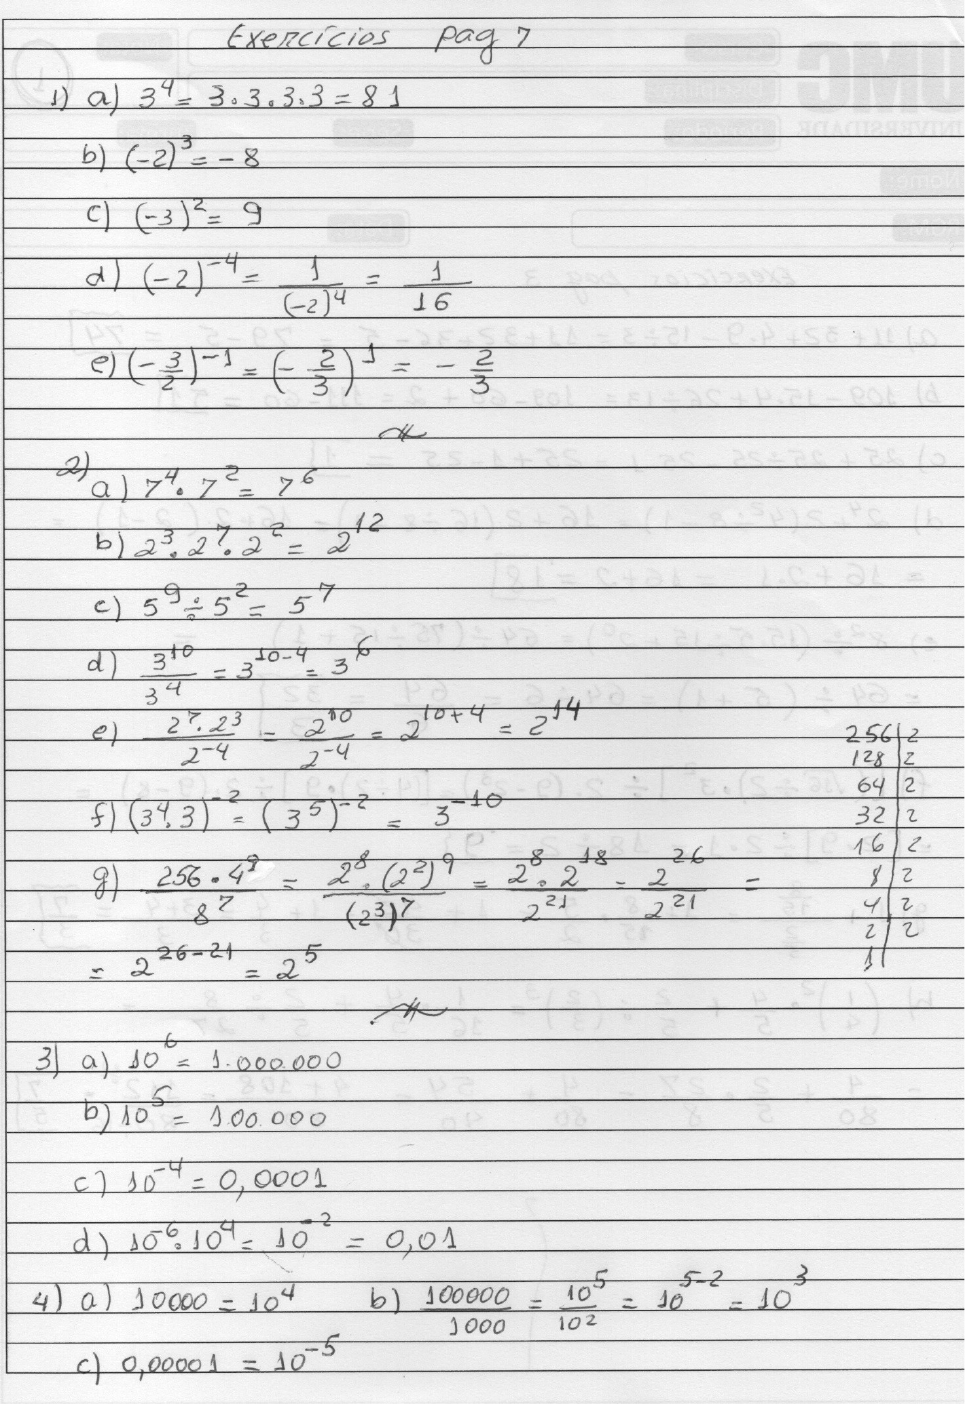 Exercícios pag 7
1) a) 3⁴ = 3.3.3.3 = 81
b) (-2)³ = -8
c) (-3)² = 9
d) (-2)⁻⁴ = 1/(-2)⁴ = 1/16
e) (-3/2)⁻¹ = (-2/3)¹ = -2/3
2)
a) 7⁴.7² = 7⁶
b) 2³.2⁷.2² = 2¹²
c) 5⁹ ÷ 5² = 5⁷
d) 3¹⁰/3⁴ = 3¹⁰⁻⁴ = 3⁶
e) 2⁷.2³/2⁻⁴ = 2¹⁰/2⁻⁴ = 2¹⁰⁺⁴ = 2¹⁴
f) (3⁴.3)⁻² = (3⁵)⁻² = 3⁻¹⁰
g) 256.4⁹/8⁷ = 2⁸.(2²)⁹/(2³)⁷ = 2⁸.2¹⁸/2²¹ = 2²⁶/2²¹ =
= 2²⁶⁻²¹ = 2⁵
256|2
128|2
64|2
32|2
16|2
8|2
4|2
2|2
1|
3) a) 10⁶ = 1.000.000
b) 10⁵ = 100.000
c) 10⁻⁴ = 0,0001
d) 10⁻⁶.10⁴ = 10⁻² = 0,01
4) a) 10000 = 10⁴ b) 100000/1000 = 10⁵/10² = 10⁵⁻² = 10³
c) 0,00001 = 10⁻⁵